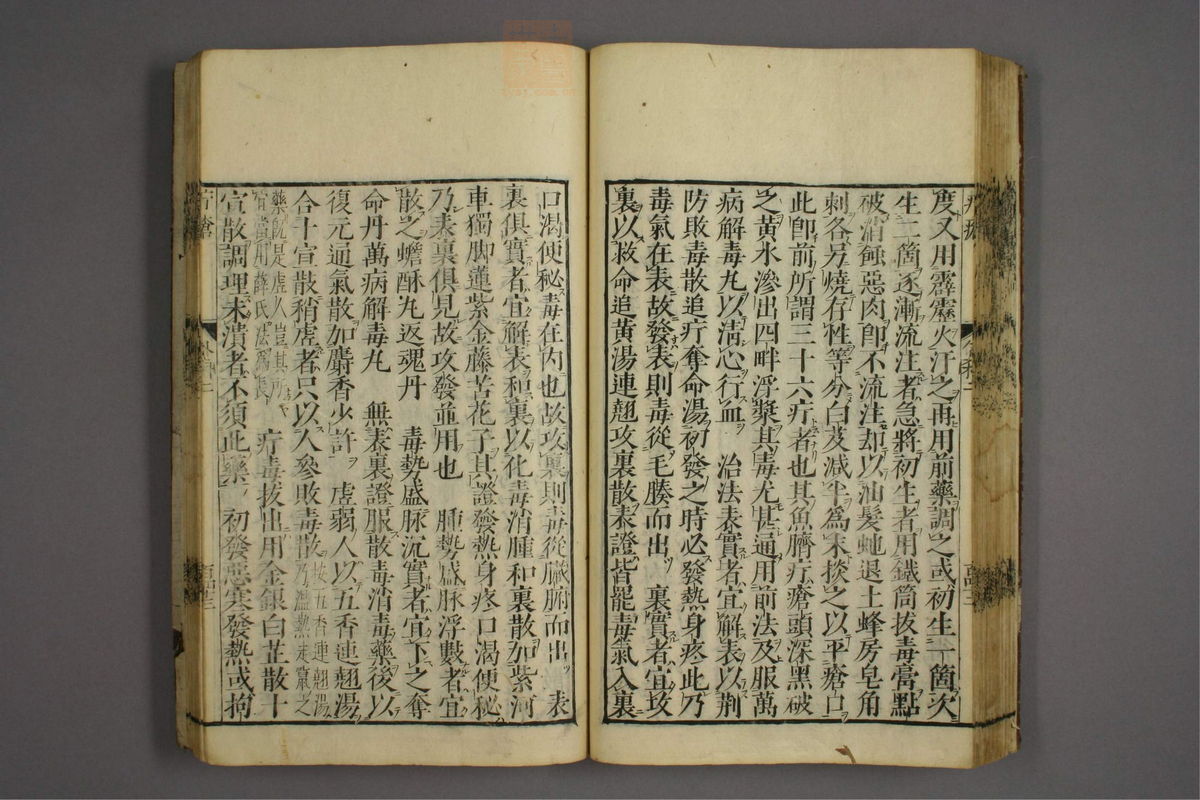 度又用霹靂火汗之再用前藥調之或初生一箇次
生二箇逐漸流注者急將初生者用鐵筒拔毒膏點
破消蝕惡肉卽不流注却以油髮虵退土蜂房皂角
刺各另燒存性等分白芨減半爲末掞之以平瘡口
此卽前所謂三十六疔者也其魚臍疔瘡頭深黑破
之黃水滲出四畔浮漿其毒尤甚通用前法及服萬
病解毒丸以淸心行血 治法表實者宜解表以荆
防敗毒散追疔奪命湯初發之時必發熱身疼此乃
毒氣在表故發表則毒從毛腠而出 裏實者宜攻
裏以救命追黃湯連翹攻裏散表證皆罷毒氣入裏
口渴便秘毒在內也故攻裏則毒從臟腑而出 表
裏俱實者宜解表和裏以化毒消腫和裏散加紫河
車獨脚蓮紫金藤苦花子其證發熱身疼口渴便秘
乃表裏俱見故攻發並用也 腫勢盛脉浮數者宜
散之蟾酥丸返魂丹 毒勢盛脉沉實者宜下之奪
命丹萬病解毒丸 無表裏證服散毒消毒藥後以
復元通氣散加麝香少許 虛弱人以五香連翹湯
合十宣散稍虛者只以人參敗毒散按五香連翹湯
乃溫熱走竄之
藥旣是虛人豈其所
宜當用薛氏法爲長 疔毒拔出用金銀白芷散十
宣散調理未潰者不須此藥 初發惡寒發熱或拘